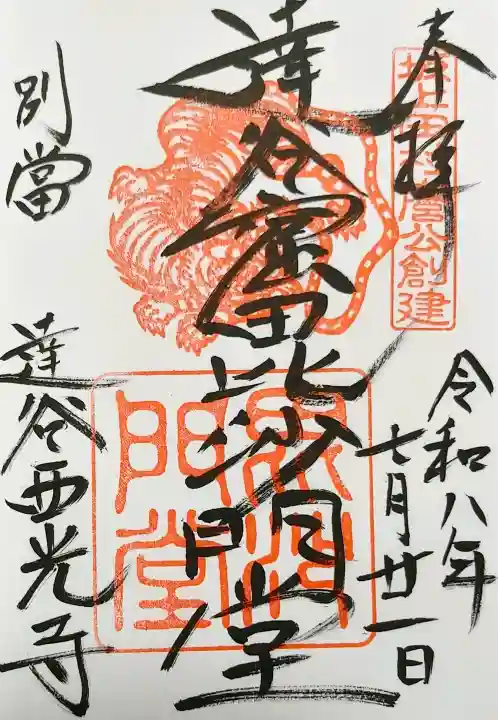 奉拝
坂上田村麿公創建
令和八年
七月廿一日
達谷窟毘沙門堂
毘沙門堂
別當
達谷西光寺